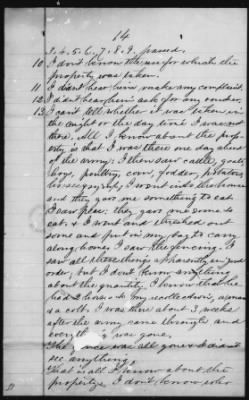 14
3. 4. 5. 6. 7. 8. 9. passed.
10 I don't know the use for which the
property was taken.
11 I didn't hear him make any complaint.
12 I didn't hear him ask for any voucher.
13 I can't tell whether it was taken in
the night or the day time I was not
there. All I know about the prop-
erty is that I was there one day ahead
of the army; I then saw cattle, goats,
hogs, poultry, corn, fodder, potatoes,
I went into the house
and they gave me something to eat
I saw peas: they gave me some to
eat & I went and thrashed out
some and put in my bag to carry
along home; I saw the fencing. I
saw all these things apparently in good
order, but I don't know anything
about the quantity. I know that he
had 2 horses to my recollection, a mare
& a colt. I was there about 3 weeks
after the army came through and
everything was gone.
The fence was all gone & I didn't
see anything.
That is all I know about the
property. I don't know who